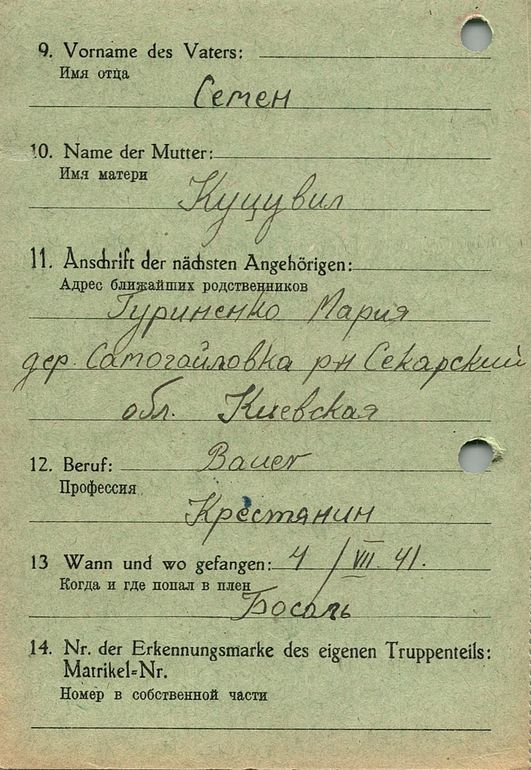 9. Vorname des Vaters:
Имя отца
Семен
10. Name der Mutter:
Имя матери
Куцувил
11. Anschrift der nächsten Angehörigen:
Адрес ближайших родственников
Гуриненко Мария
дер. Самогайловка рн Секарский
обл. Киевская
12. Beruf: Bauer
Профессия
Крестянин
13 Wann und wo gefangen: 4/VII. 41.
Когда и где попал в плен
Босаль
14. Nr. der Erkennungsmarke des eigenen Truppenteils:
Matrikel=Nr.
Номер в собственной части